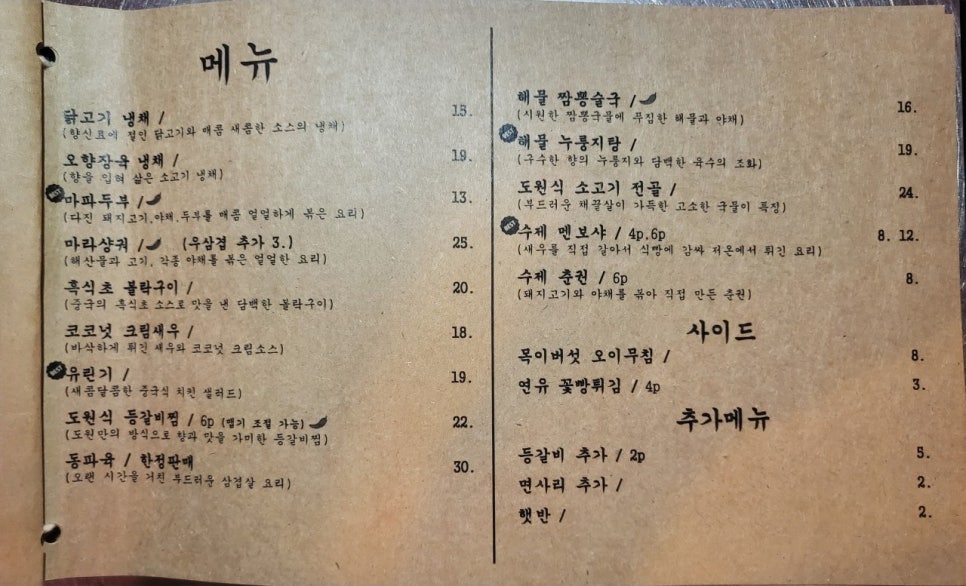 메뉴
닭고기 냉채 / 15.
(향신료에 절인 닭고기와 매콤 새콤한 소스의 냉채)
오향장육 냉채 / 19.
(향을 입혀 삶은 소고기 냉채)
마파두부 / 13.
(다진 돼지고기,야채,두부를 매콤 얼얼하게 볶은 요리)
마라샹궈 / (우삼겹 추가 3.) 25.
(해산물과 고기, 각종 야채를 볶은 얼얼한 요리)
흑식초 볼락구이 / 20.
(중국의 흑식초 소스로 맛을 낸 담백한 볼락구이)
코코넛 크림새우 / 18.
(바삭하게 튀긴 새우와 코코넛 크림소스)
유린기 / 19.
(새콤달콤한 중국식 치킨 샐러드)
도원식 등갈비찜 / 6p (맵기 조절 가능) 22.
(도원만의 방식으로 향과 맛을 가미한 등갈비찜)
동파육 / 한정판매 30.
(오랜 시간을 거친 부드러운 삼겹살 요리)
해물 짬뽕술국 / 16.
(시원한 짬뽕국물에 푸짐한 해물과 야채)
해물 누룽지탕 / 19.
(구수한 향의 누룽지와 담백한 육수의 조화)
도원식 소고기 전골 / 24.
(부드러운 채끝살이 가득한 고소한 국물이 특징)
수제 멘보샤 / 4p,6p 8. 12.
(새우를 직접 갈아서 식빵에 감싸 저온에서 튀긴 요리)
수제 춘권 / 6p 8.
(돼지고기와 야채를 볶아 직접 만든 춘권)
사이드
목이버섯 오이무침 / 8.
연유 꽃빵튀김 / 4p 3.
추가메뉴
등갈비 추가 / 2p 5.
면사리 추가 / 2.
햇반 / 2.